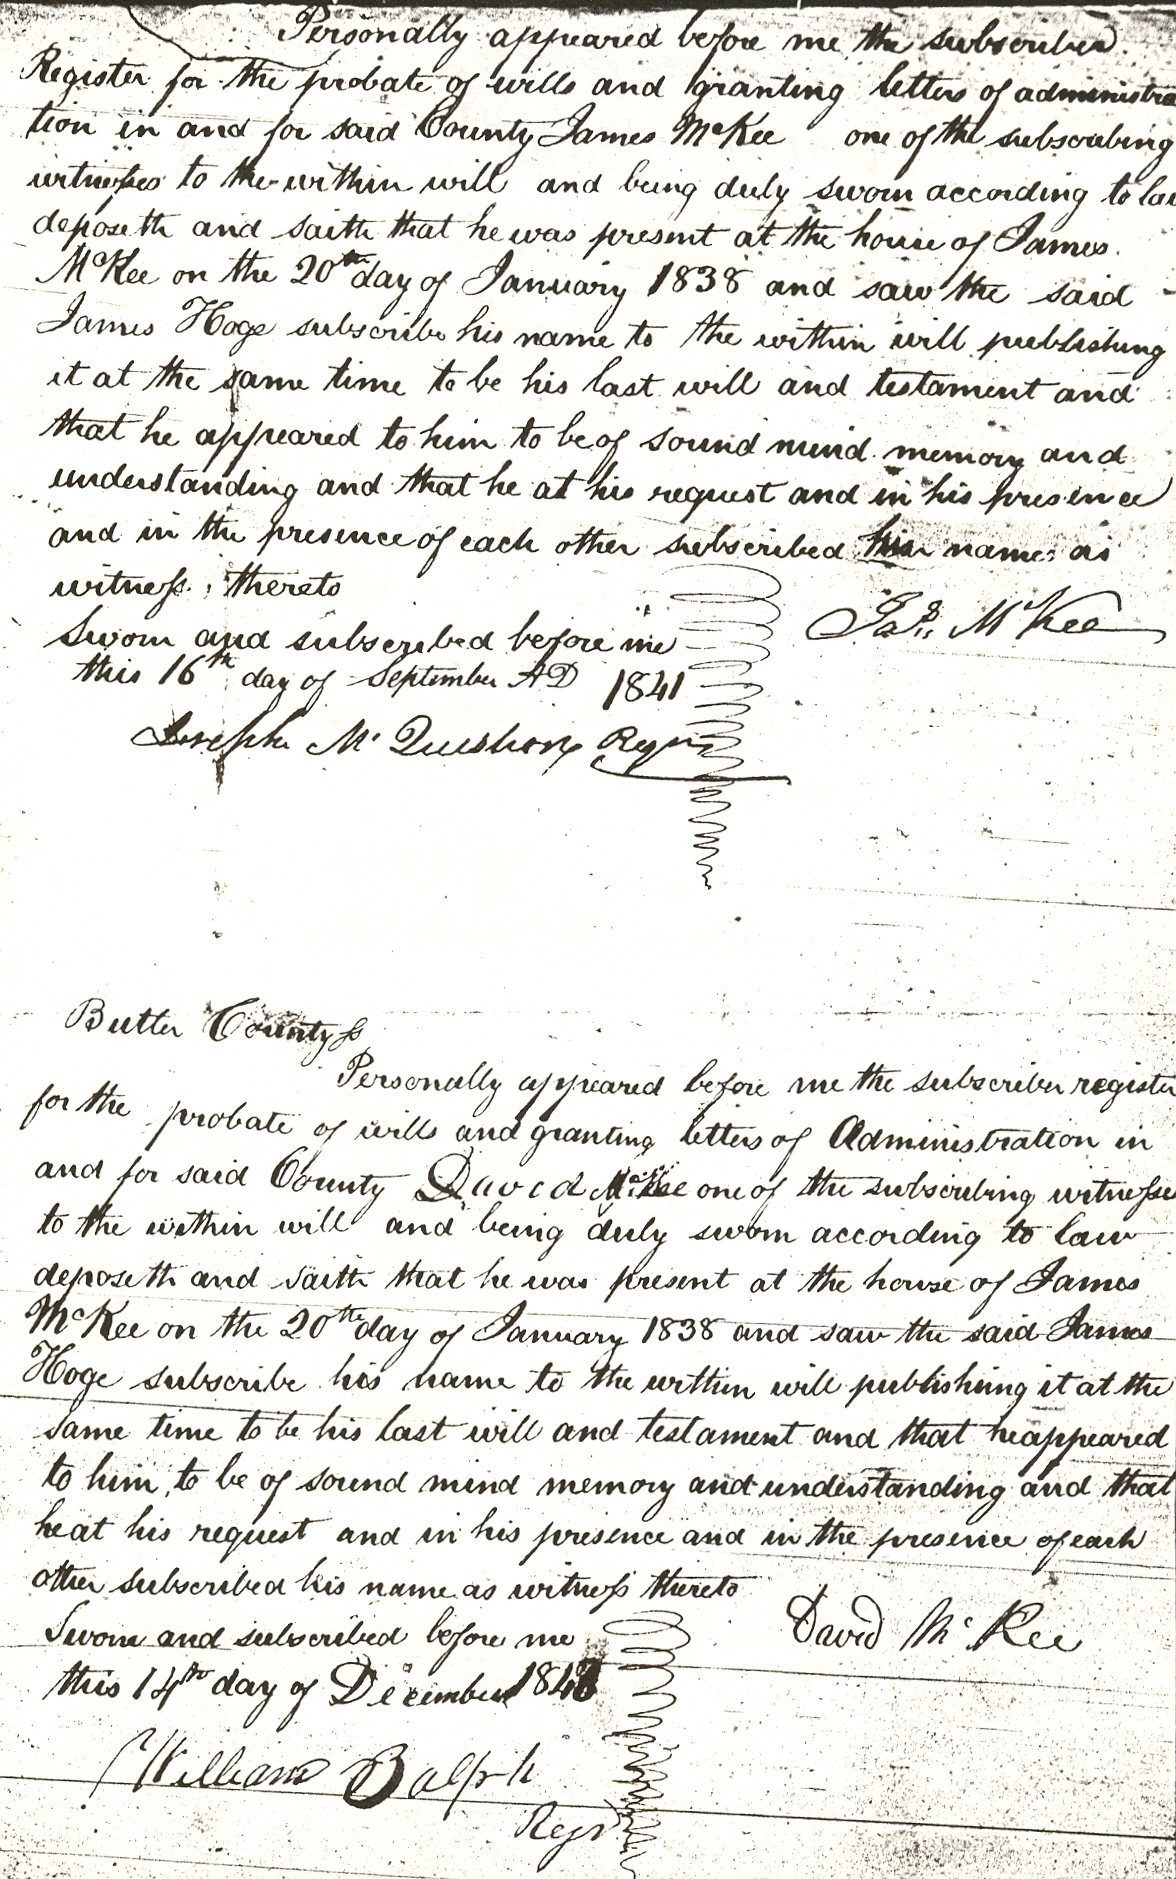 Personally appeared before me the subscriber
Register for the probate of wills and granting letters of administra
tion in and for said County James McKee one of the subscribing
witnesses to the within will and being duly sworn according to law
deposeth and saith that he was present at the house of James
McKee on the 20th day of January 1838 and saw the said
James Hoge subscribe his name to the within will publishing
it at the same time to be his last will and testament and
that he appeared to him to be of sound mind memory and
understanding and that he at his request and in his presence
and in the presence of each other subscribed his name as
witness thereto
Sworn and subscribed before me
Jas. McKee
this 16th day of September AD 1841
Joseph McQuistion Regr
Butler County ss
Personally appeared before me the subscriber register
for the probate of wills and granting letters of Administration in
and for said County David McKee one of the subscribing witnesses
to the within will and being duly sworn according to law
deposeth and saith that he was present at the house of James
McKee on the 20th day of January 1838 and saw the said James
Hoge subscribe his name to the within will publishing it at the
same time to be his last will and testament and that he appeared
to him to be of sound mind memory and understanding and that
he at his request and in his presence and in the presence of each
other subscribed his name as witness thereto
David McKee
Sworn and subscribed before me
this 14th day of December
William Balph
Regr